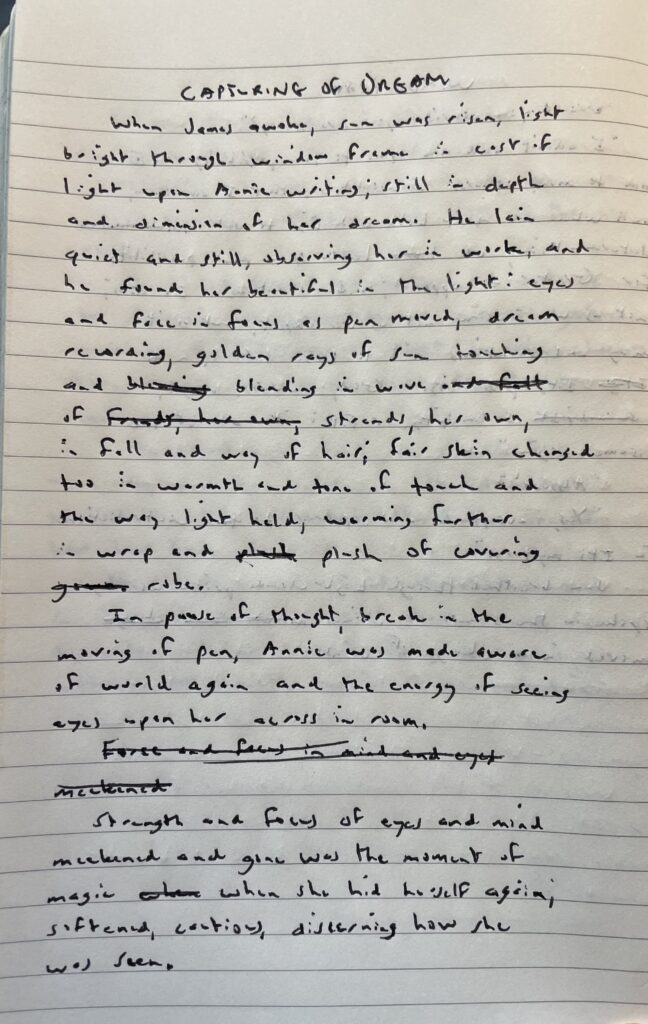 CAPTURING OF DREAM
When James awoke, sun was risen, light
bright through window frame in cast of
light upon Annie writing; still in depth
and dimension of her dream. He lain
quiet and still, observing her in work, and
he found her beautiful in the light: eyes
and face in focus as pen moved, dream
recording, golden rays of sun touching
and blending in wave and fall
of strands, her own,
in fall and way of hair; fair skin changed
too in warmth and tone of touch and
the way light held, warming further
in wrap and plush plush of covering
robe.
In pause of thought, break in the
moving of pen, Annie was made aware
of world again and the energy of seeing
eyes upon her across in room.
Force and focus in mind and eyes
meekened
Strength and focus of eyes and mind
meekened and gone was the moment of
magic when she hid herself again;
softened, cautious, discerning how she
was seen.